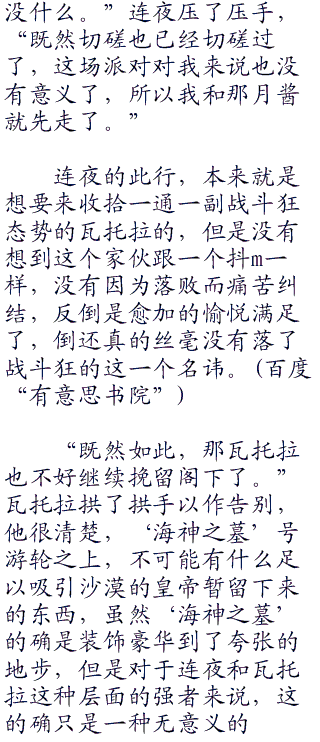 没什么。”连夜压了压手，
“既然切磋也已经切磋过
了，这场派对对我来说也没
有意义了，所以我和那月酱
就先走了。”
连夜的此行，本来就是
想要来收拾一通一副战斗狂
态势的瓦托拉的，但是没有
想到这个家伙跟一个抖m一
样，没有因为落败而痛苦纠
结，反倒是愈加的愉悦满足
了，倒还真的丝毫没有落了
战斗狂的这一个名讳。(百度
“有意思书院”)
“既然如此，那瓦托拉
也不好继续挽留阁下了。”
瓦托拉拱了拱手以作告别，
他很清楚，‘海神之墓’号
游轮之上，不可能有什么足
以吸引沙漠的皇帝暂留下来
的东西，虽然‘海神之墓’
的确是装饰豪华到了夸张的
地步，但是对于连夜和瓦托
拉这种层面的强者来说，这
的确只是一种无意义的